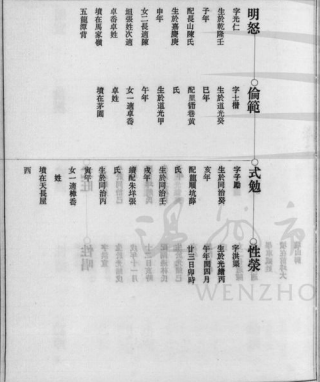 明怒
字光仁
生於乾隆壬
子年
配長山陳氏
生於嘉慶庚
申年
女二長適陳
垣張姓次適
卓岙卓姓
墳在馬家嶺
五龍潭背
倫範
字七
生於道光癸
巳年
配里岙黃
氏
生於道光甲
午年
女一適卓岙
卓姓
墳在茅園
式勉
字子
生於同治癸
亥年
配龍順坑薛
氏
生於同治壬
戌年
續配朱坪張
氏
生於同治丙
寅年
女一適岙
姓
墳在天長屋
西
性榮
字洪梁
生於光緒丙
午年閏四月
廿三日卯時
WENZHO